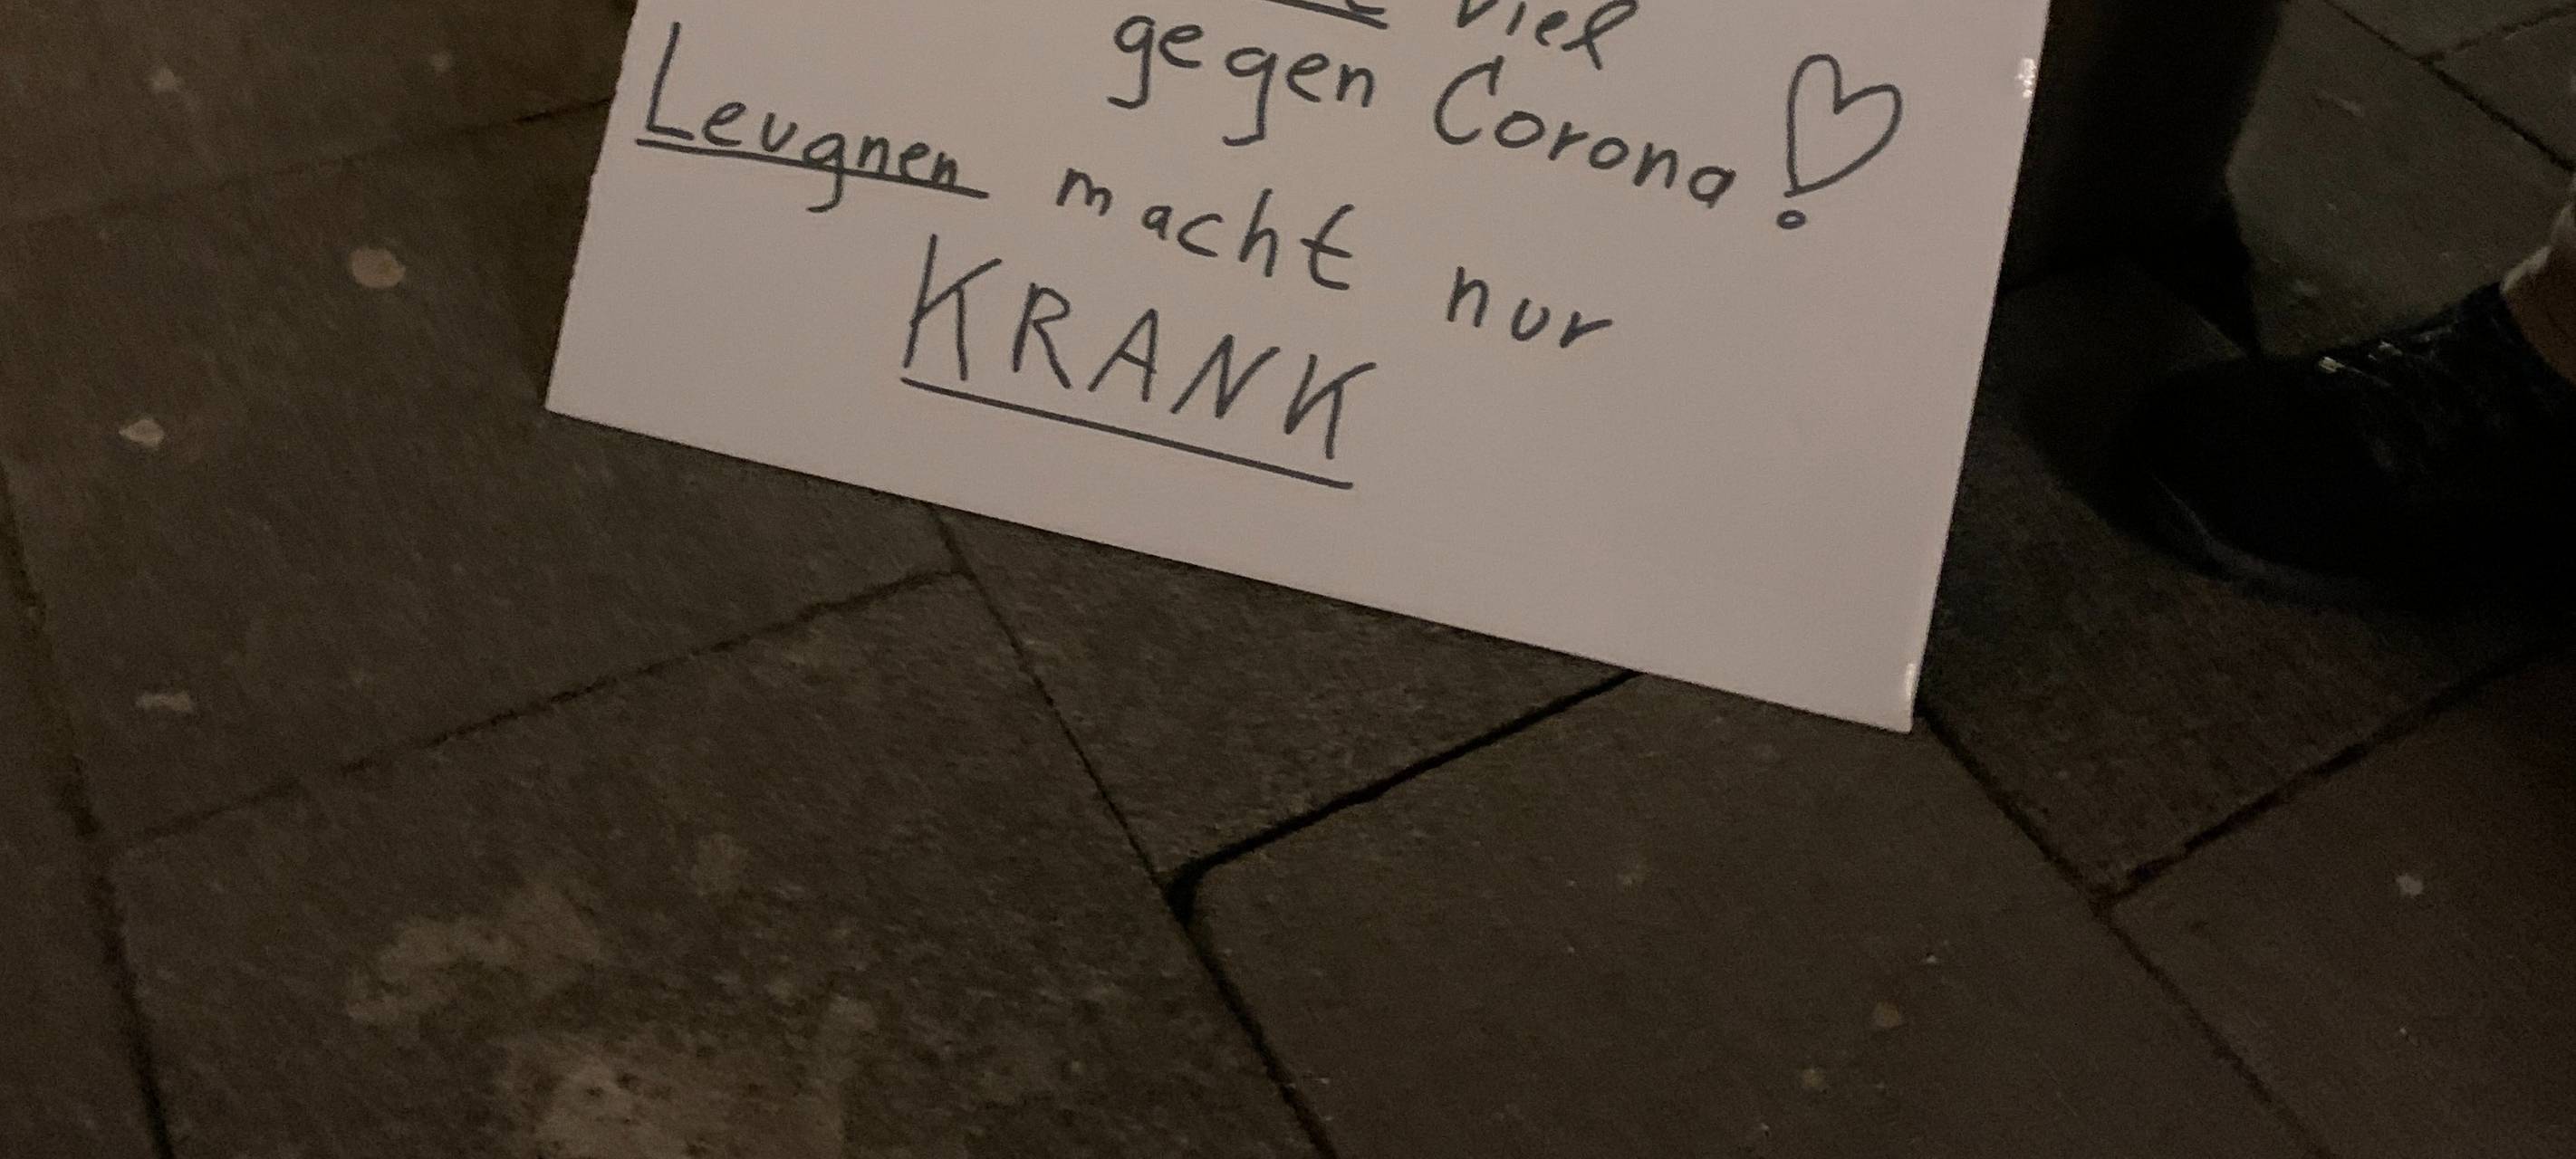 viel
gegen Corona!
Leugnen macht nur
KRANK